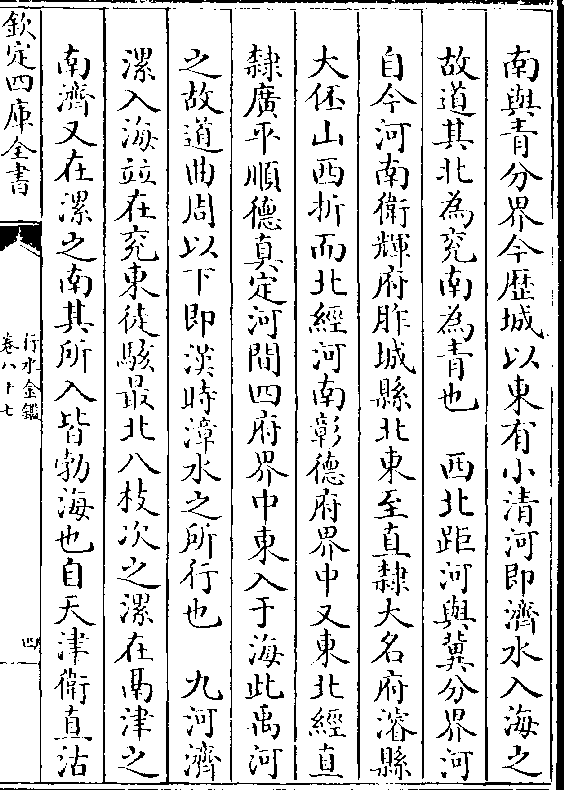 南與青分界今歴城以東有小清河即濟水入海之
故道其北為兖南為青也　西北距河與冀分界河
自今河南衛輝府胙城縣北東至直𨽻大名府濬縣
大伾山西折而北經河南彰德府界中又東北經直
𨽻廣平順德真定河間四府界中東入于海此禹河
之故道曲周以下即漢時漳水之所行也　九河濟
漯入海竝在兖東徒駭最北八枝次之漯在鬲津之
南濟又在漯之南其所入皆勃海也自天津衛直沽
欽定四庫全書
行水金鑑
卷八十七
四